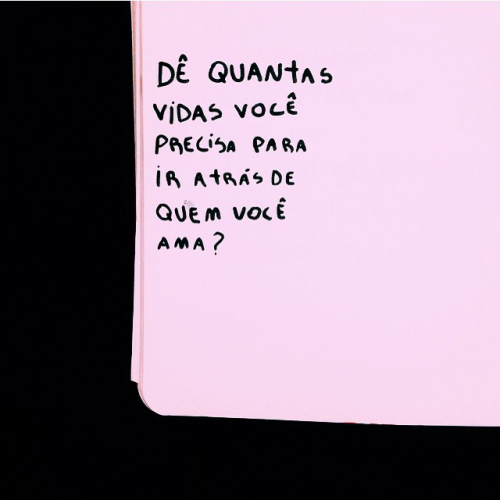 DÊ QUANtAS
ViDAS VOCÊ
PRECiSA PARA
iR AtRÁS DE
QUEM VOCÊ
AMA?